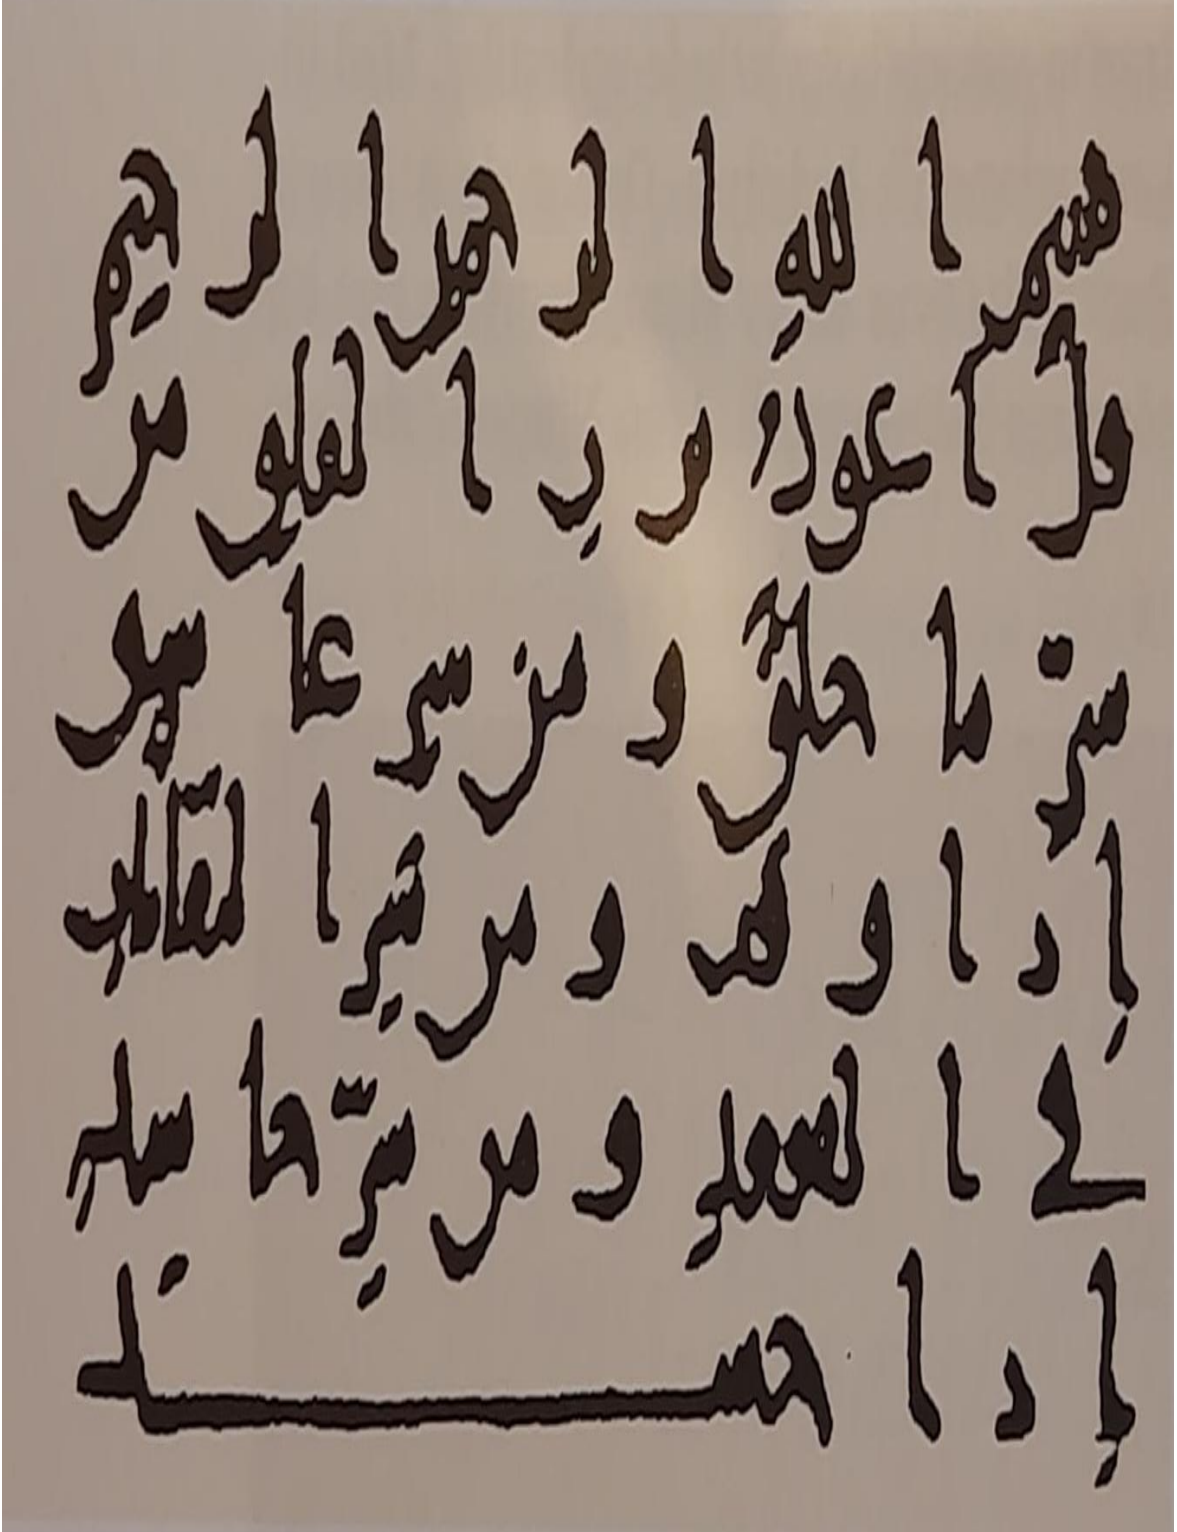 بسم الله الرحمن الرحيم
قل أعوذ برب الفلق من
شرّ ما خلق ومن شر غاسق
إذا وقب ومن شرّ النفّاثات
في العقد ومن شرّ حاسد
إذا حسد